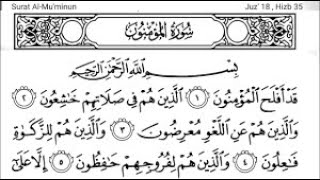 Surat Al-Mu'minun Juz' 18 , Hizb 35
سُورَةُ الْمُؤْمِنُونَ
بِسْمِ اللَّهِ الرَّحْمَٰنِ الرَّحِيمِ
قَدْ أَفْلَحَ الْمُؤْمِنُونَ ١ الَّذِينَ هُمْ فِي صَلَاتِهِمْ خَاشِعُونَ ٢
وَالَّذِينَ هُمْ عَنِ اللَّغْوِ مُعْرِضُونَ ٣ وَالَّذِينَ هُمْ لِلزَّكَوٰةِ
فَاعِلُونَ ٤ وَالَّذِينَ هُمْ لِفُرُوجِهِمْ حَافِظُونَ ٥ إِلَّا عَلَىٰ